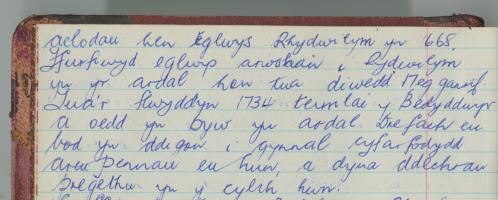 aelodau hen Eglwys Rhydwilym yn 1668.
Ffurfiwyd eglwys arwahan i Rydwilym
yn yr ardal hon tua diwedd
Tua'r flwyddyn 1734 teimlai y Bedyddwyr
a oedd yn byw yn ardal Drefach eu
bod yn ddigon i gynnal cyfarfodydd
areu pennau eu hun, a dyna ddechrau
Bregethu yn y cylch hwn.